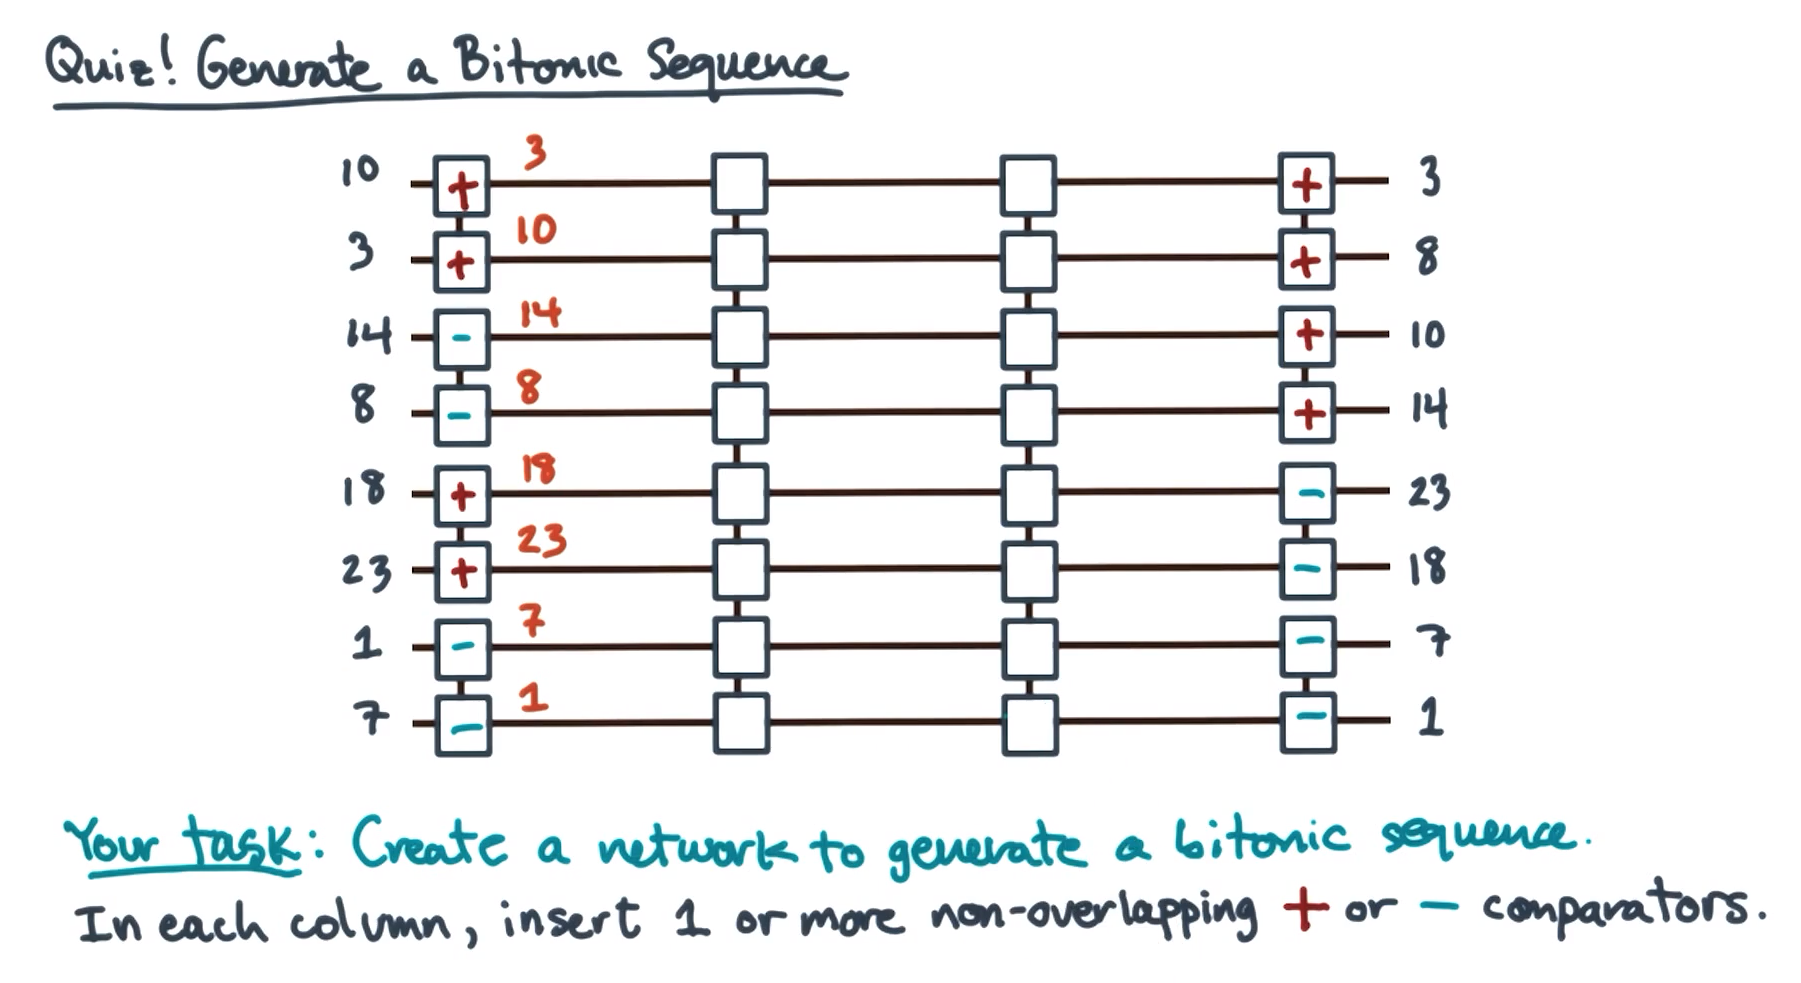 Quiz! Generate a Bitonic Sequence
10 + 3 + 3
3 + 10 + 8
14 - 14 + 10
8 - 8 + 14
18 + 18 - 23
23 + 23 - 18
1 - 7 - 7
7 - 1 - 1
Your task: Create a network to generate a bitonic sequence.
In each column, insert 1 or more non-overlapping + or - comparators.